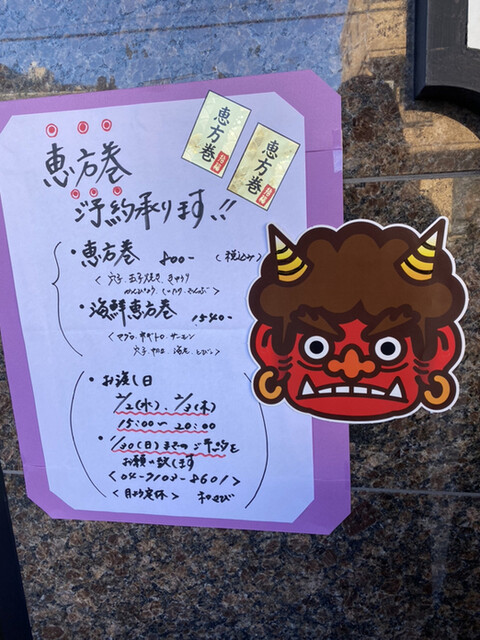 恵方巻
恵方巻
恵方巻
ご予約承ります!!
・恵方巻 800- (税込み)
<穴子、玉子焼き、きゅうり
かんぴょう、しいたけ、でんぶ>
・海鮮恵方巻 1,540-
<マグロ、中トロ、サーモン
穴子、海老、とびこ>
・お渡し日
2/2(水)、2/3(木)
15:00〜20:00
・1/30(日)までのご予約を
お願い致します
<04-7103-8601>
<月よう定休>